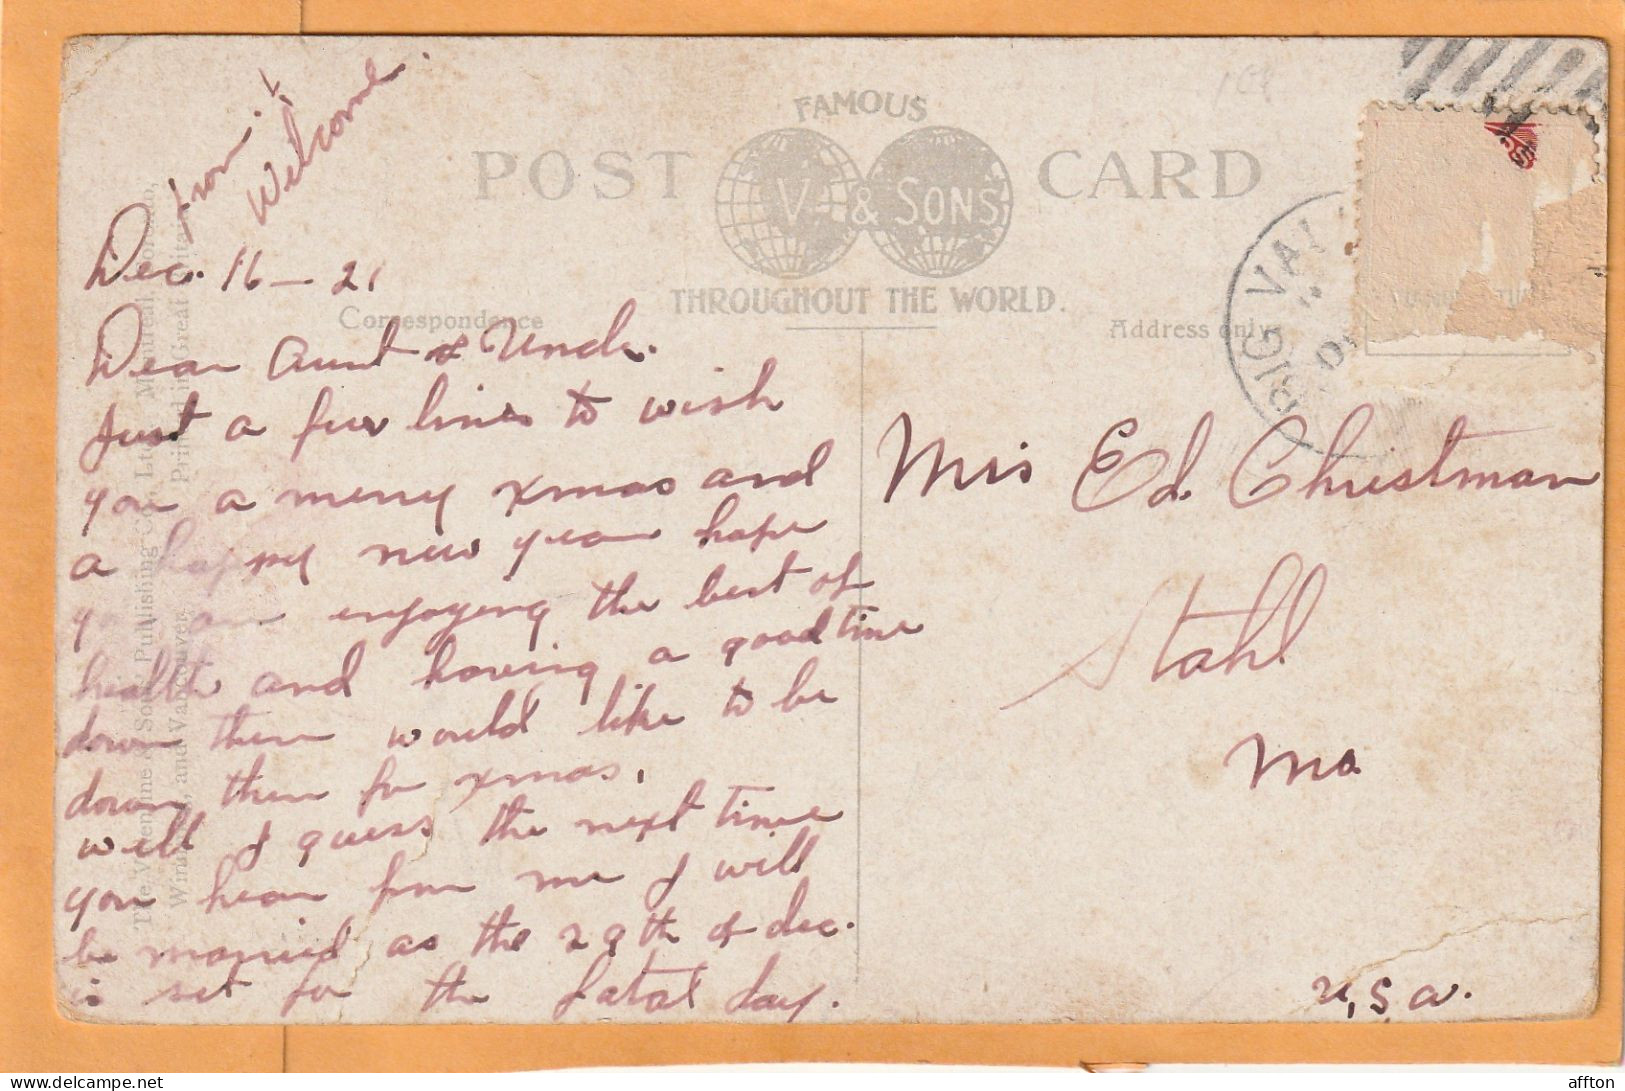 from.
Welcome.
Dec. 16 - 21
Dear Aunt & Uncle.
Just a few lines to wish
you a merry xmas and
a happy new year hope
you are enjoying the best of
health and having a good time
down there would like to be
down there for xmas.
well I guess the next time
you hear from me I will
be married as the 29th of dec.
is set for the fatal day.
FAMOUS
POST V. & SONS CARD
THROUGHOUT THE WORLD.
Correspondence
Address only
Mrs Ed. Christman
Stahl
Mo
U.S.A.
The Valentine & Sons Publishing Co. Ltd. Montreal, Toronto,
Winnipeg, and Vancouver. Printed in Great Britain
affton